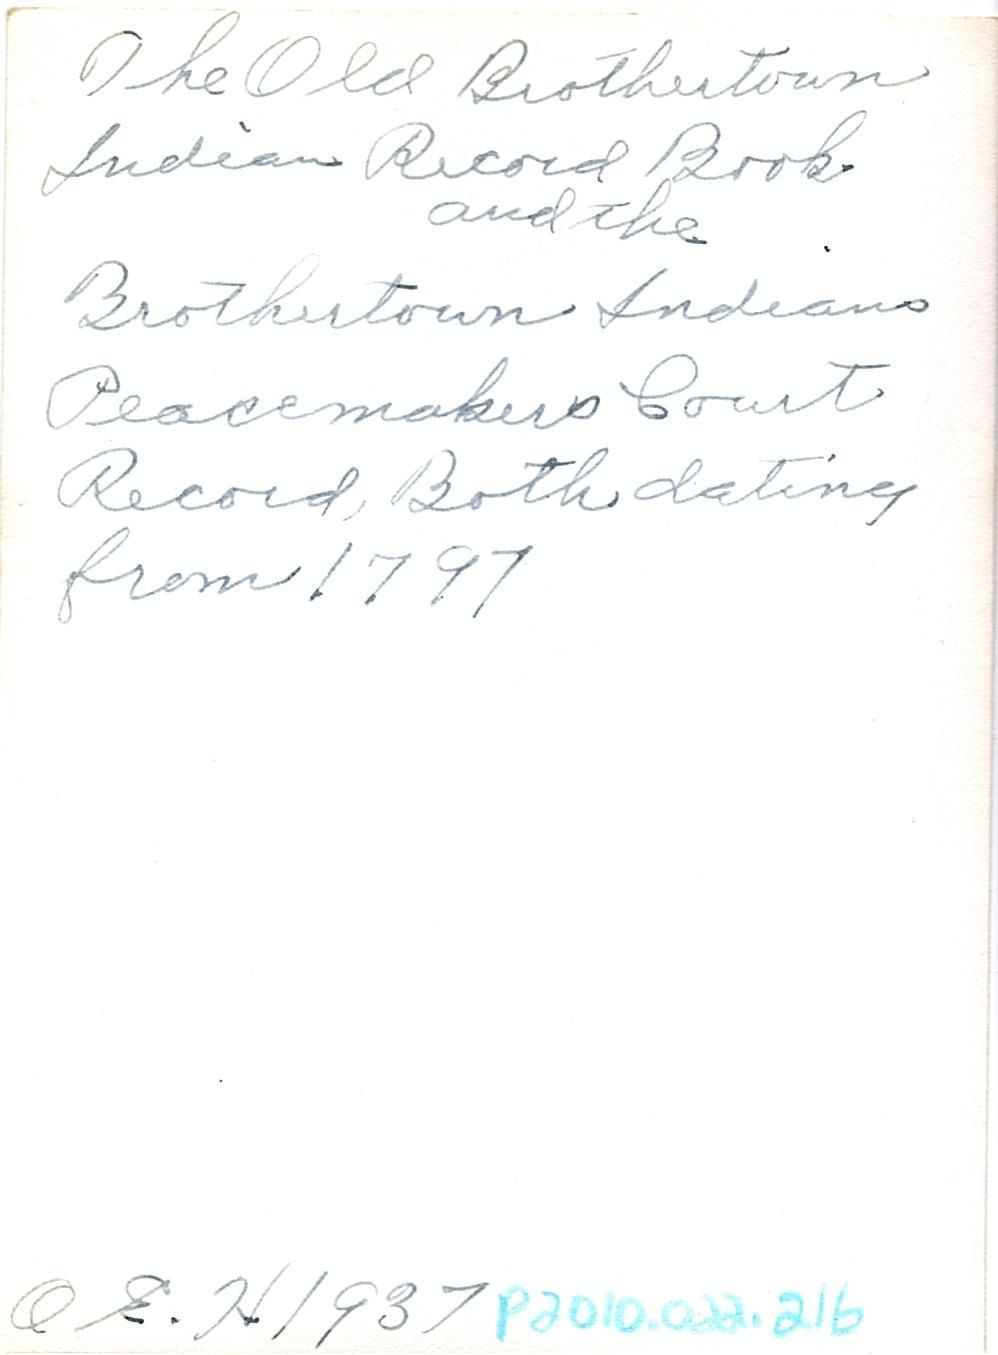 The Old Brothertown
Indian Record Book
and the
Brothertown Indians
Peacemakers Court
Record, Both dating
from 1797
O E. H 1937 P2010.022.216